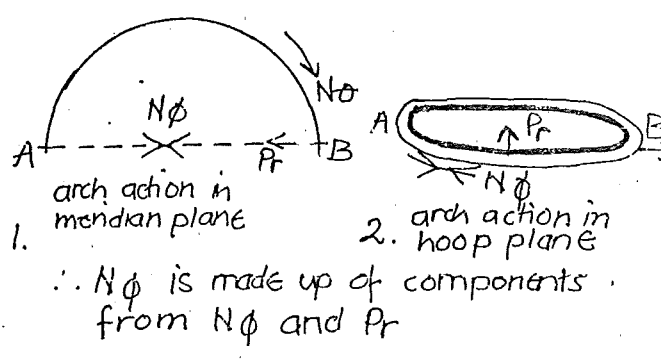 Nθ
Nφ
A
Pr
B
arch action in
meridian plane
1.
A
Pr
B
Nφ
arch action in
2. hoop plane
∴ Nφ is made up of components.
from Nφ and Pr